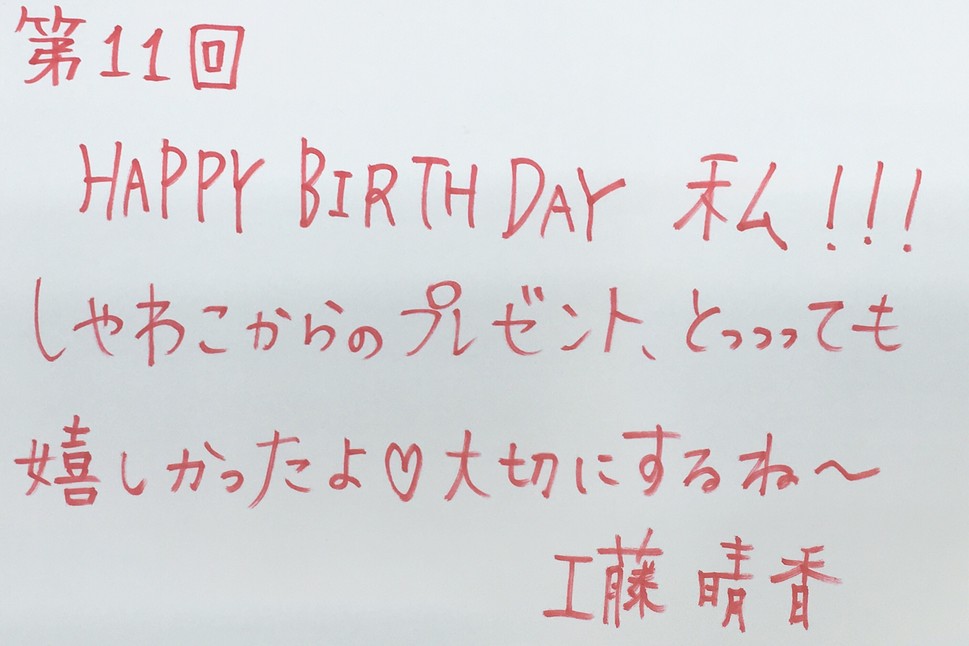 第11回
HAPPY BIRTHDAY 私!!!
しゃわこからのプレゼント、とっっっても
嬉しかったよ♡大切にするね〜
工藤晴香